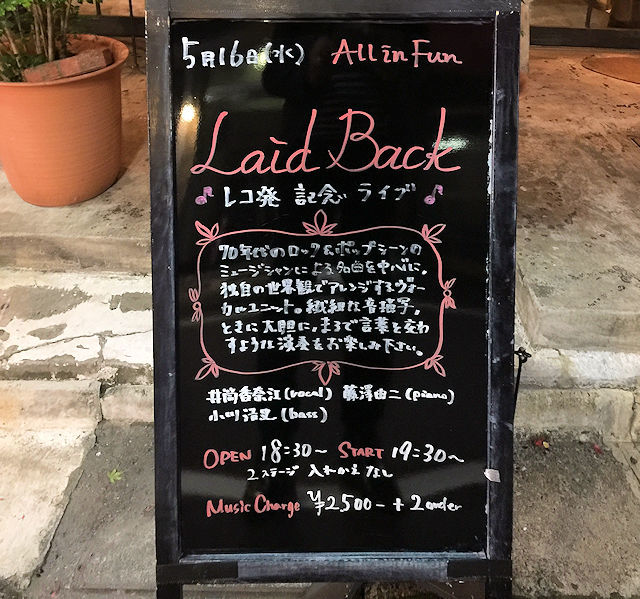 5月16日(水) All in Fun
Laid Back
レコ発 記念 ライブ
70年代のロック&ポップシーンの
ミュージシャンによる名曲を中心に。
独自の世界観でアレンジするヴォー
カルユニット。繊細な音描写,
ときに大胆に,まるで言葉を交わ
すような演奏をお楽しみ下さい。
井筒香奈江(vocal) 藤澤由二(piano)
小川浩史(bass)
OPEN 18:30~ START 19:30~
2ステージ 入れかえなし
Music Charge ¥2500-+2order